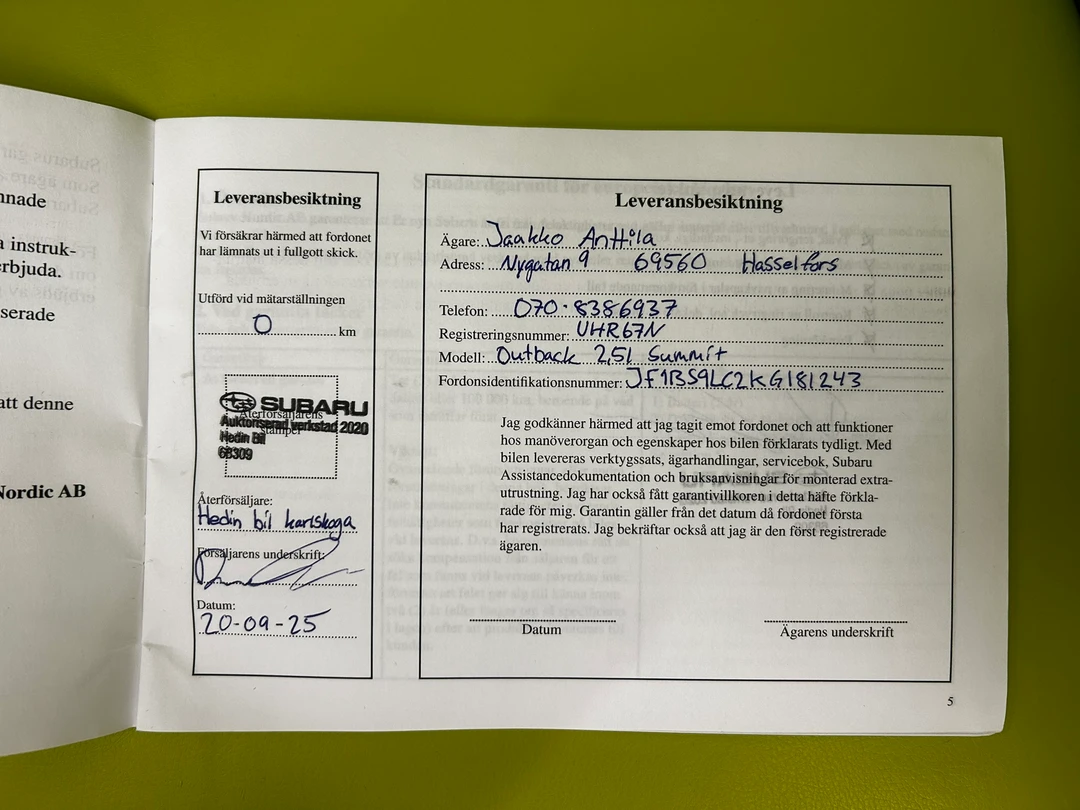 nnade
a instruk-
erbjuda.
serade
att denne
Nordic AB
Leveransbesiktning
Vi försäkrar härmed att fordonet
har lämnats ut i fullgott skick.
Utförd vid mätarställningen
0 km
SUBARU
Återförsäljarens
Auktoriserad verkstad 2020
stämpel
Hedin Bil
68309
Återförsäljare:
Hedin bil karlskoga
Försäljarens underskrift:
Datum:
20-09-25
Leveransbesiktning
Ägare: Jaakko Anttila
Adress: Nygatan 9 69560 Hasselfors
Telefon: 070-8386937
Registreringsnummer: UHR67N
Modell: Outback 2,5i Summit
Fordonsidentifikationsnummer: JF1BS9LC2KG181243
Jag godkänner härmed att jag tagit emot fordonet och att funktioner
hos manöverorgan och egenskaper hos bilen förklarats tydligt. Med
bilen levereras verktygssats, ägarhandlingar, servicebok, Subaru
Assistancedokumentation och bruksanvisningar för monterad extra-
utrustning. Jag har också fått garantivillkoren i detta häfte förkla-
rade för mig. Garantin gäller från det datum då fordonet första
har registrerats. Jag bekräftar också att jag är den först registrerade
ägaren.
Datum
Ägarens underskrift
5